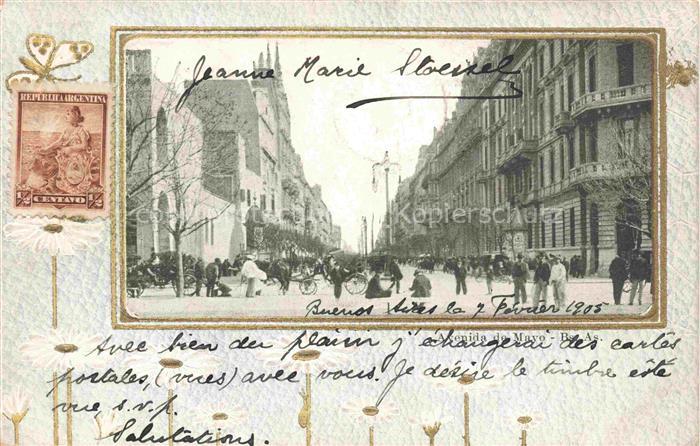 Jeanne Marie Stoessel
REPUBLICA ARGENTINA
½ CENTAVO ½
Kopierschutz
Buenos Aires le 7 Février 1905
Avenida de Mayo - Bs. As.
Avec bien du plaisir j'changerai des cartes
postales, (vues) avec vous. Je désire le timbre côté
vue, s.v.p.
Salutations.